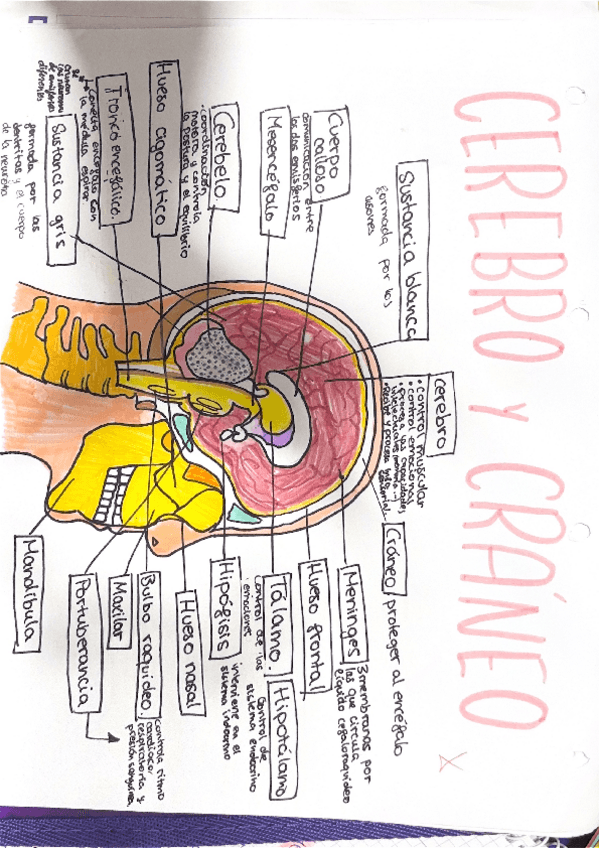 CEREBRO Y CRÁNEO
cerebro
• control muscular
• control emocional
Sustancia blanca
formada por los
axones
Cuerpo
calloso
comunicación entre
los dos emisferios
Mesencéfalo
Cerebelo
• coordinación
motora y controla
la postura y el equilibrio
Hueso cigomático
Tronco encefálico.
Conecta encéfalo con
la médula espinal
Sustancia gris
formada por las
dentritas y el cuerpo
de la neurona
Cráneo proteger al encéfalo
Meninges
3 membranas por
las que circula
líquido cefaloraquídeo
Hueso frontal
Tálamo.
control de las
emociones
Hipotálamo
control de
sistema endocrino
Hipofisis
interviene en el
sistema endocrino
Hueso nasal
Bulbo raquídeo
controla ritmo
cardíaco,
respiratoria y
presión sanguínea
Maxilar
Portuberancia
Mandíbula